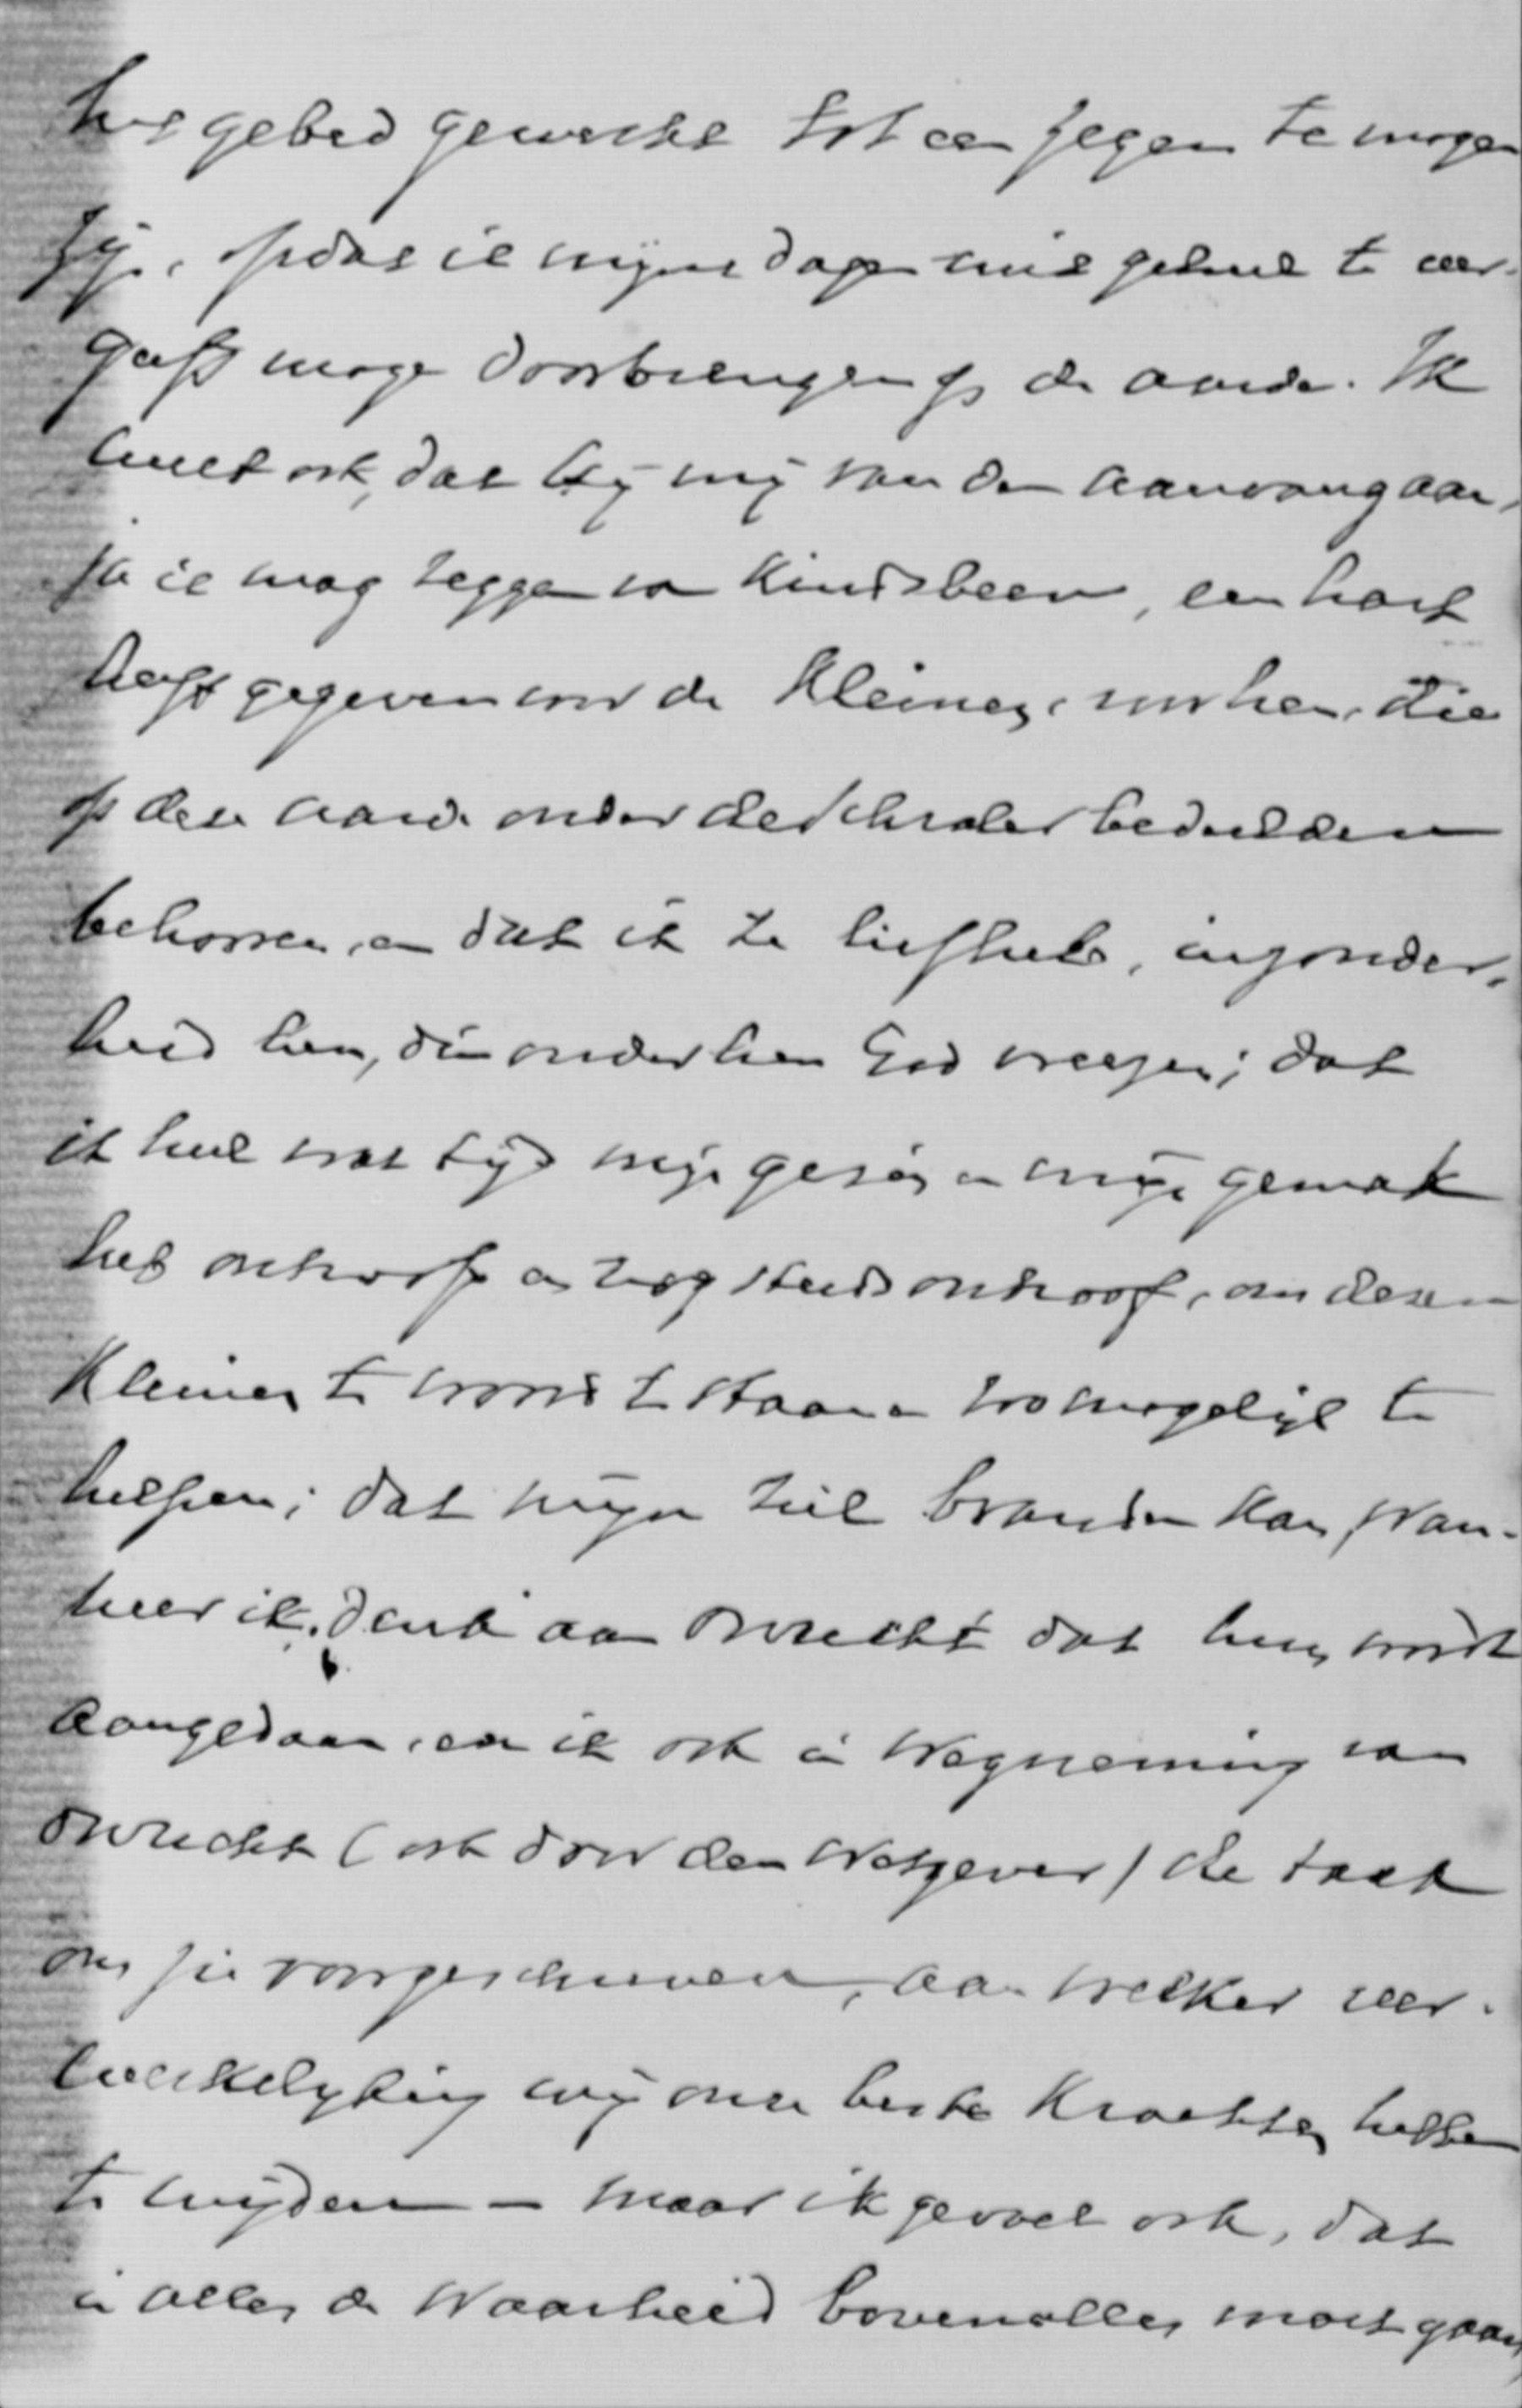 het gebed gewerkt tot een zegen te mogen
zijn, opdat ik mijne dagen niet geheel te ver-
geefs moge doorbrengen op de aarde. Ik
weet ook, dat Hij mij van den aanvang aan,
ja ik mag zeggen van Kindsbeen, een hart
heeft gegeven voor de Kleinen, voor hen, die
op deze aarde onder de schraler bedeelden
behooren, en dat ik ze liefheb, inzonder-
heid hen, die onder hen God vreezen; dat
ik heel wat tijd mijn gezin en mijn gemak
heb ontroofd en nog steeds ontroof, om dezen
Kleinen te woord te staan en zoo mogelijk te
helpen; dat mijn ziel branden kan, wan-
neer ik denk aan onrecht dat hun wordt
aangedaan, en ik ook in wegneming van
onrecht (ook door den Wetgever) de taak
ons zie voorgeschreven, aan welker ver-
werkelijking wij onze beste Krachten hebben
te wijden – maar ik gevoel ook, dat
in alles de Waarheid bovenal moet gaan,